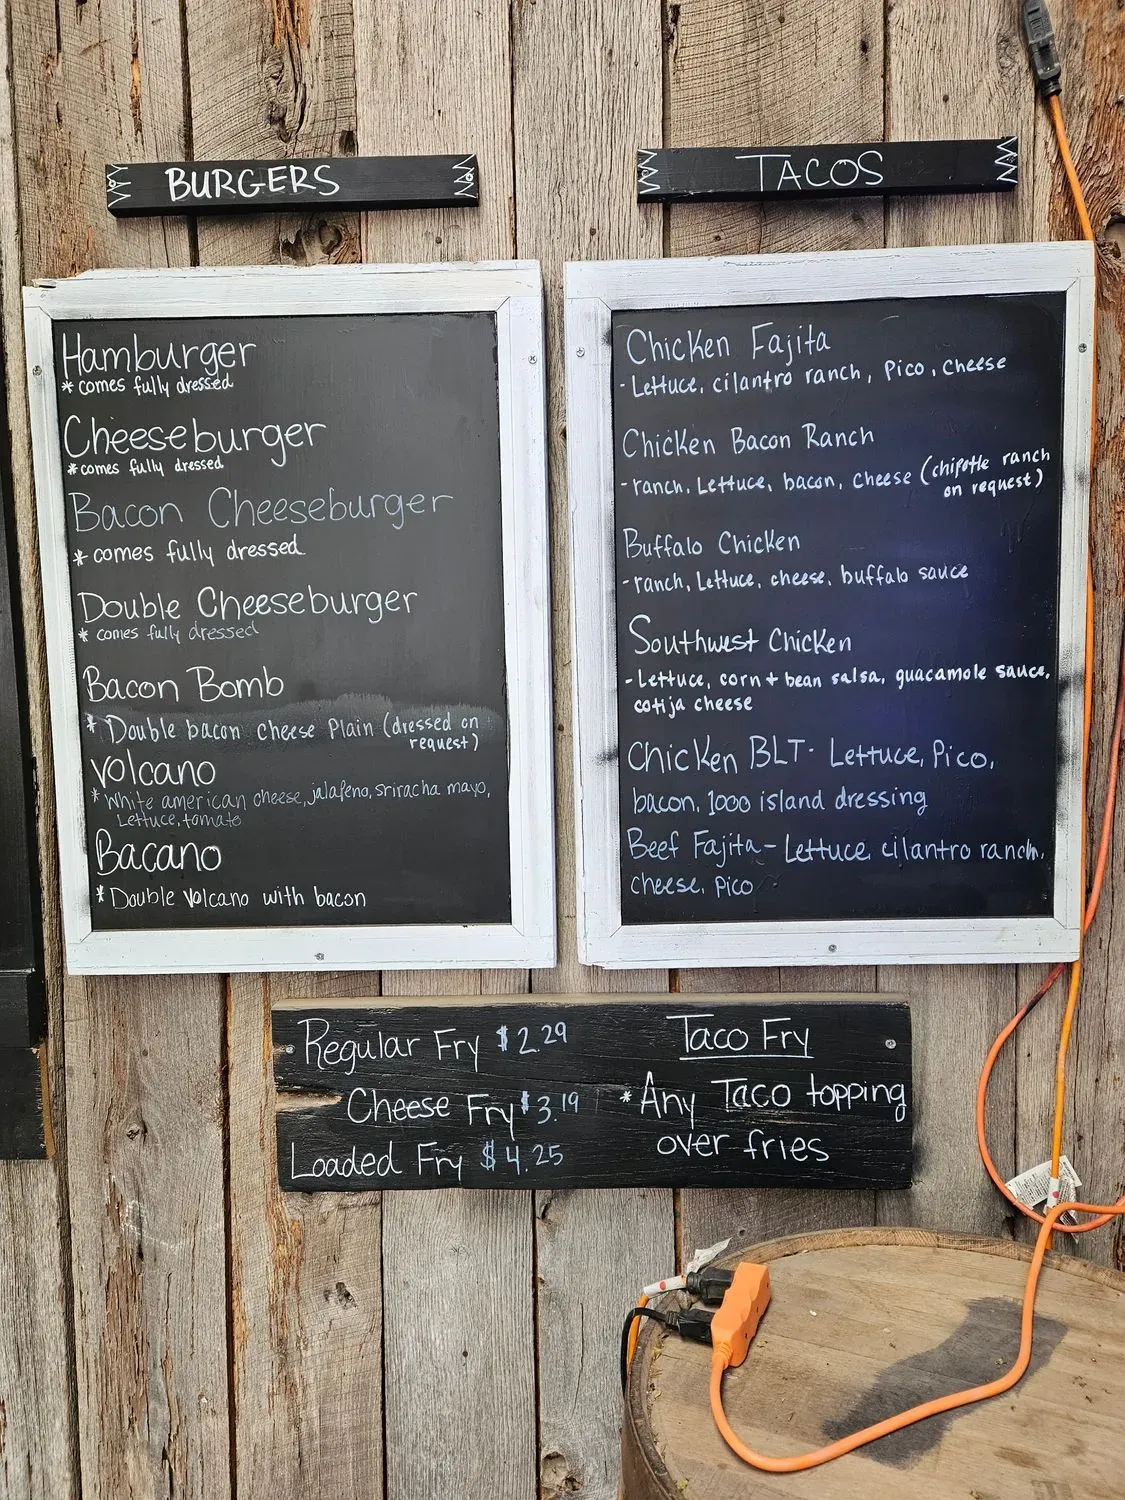 BURGERS
Hamburger
* comes fully dressed
Cheeseburger
* comes fully dressed
Bacon Cheeseburger
* comes fully dressed
Double Cheeseburger
* comes fully dressed
Bacon Bomb
* Double bacon cheese Plain (dressed on
request)
Volcano
* White american cheese, jalapeno, sriracha mayo,
Lettuce, tomato
Bacano
* Double Volcano with bacon
TACOS
Chicken Fajita
- Lettuce, cilantro ranch, Pico, cheese
Chicken Bacon Ranch
- ranch, Lettuce, bacon, cheese (chipotle ranch
on request)
Buffalo Chicken
- ranch, Lettuce, cheese, buffalo sauce
Southwest Chicken
- Lettuce, corn + bean salsa, guacamole sauce,
cotija cheese
Chicken BLT - Lettuce, Pico,
bacon, 1000 island dressing
Beef Fajita - Lettuce, cilantro ranch,
cheese, pico
Regular Fry $2.29
Cheese Fry $3.19
Loaded Fry $4.25
Taco Fry
* Any Taco topping
over fries